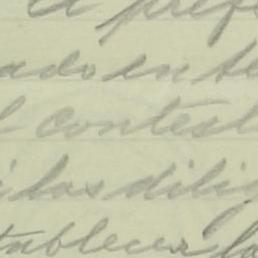 a pref
ado en te
l contest
i las dilig
tablecer la